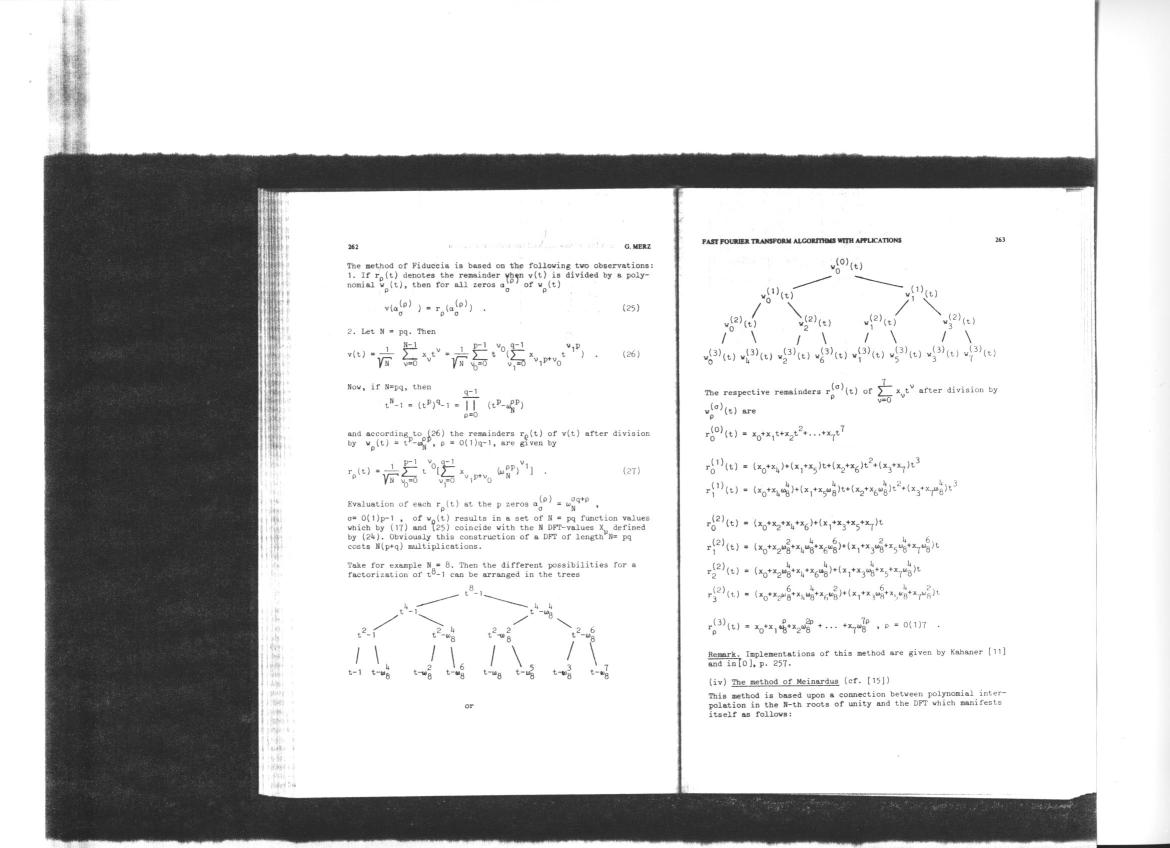 262 G. MERZ
The method of Fiduccia is based on the following two observations:
1. If r_ρ(t) denotes the remainder when v(t) is divided by a poly-
nomial w_ρ(t), then for all zeros a_σ^(ρ) of w_ρ(t)
v(a_σ^(ρ)) = r_ρ(a_σ^(ρ)) . (25)
2. Let N = pq. Then
v(t) = 1/√N ∑_{ν=0}^{N-1} x_ν t^ν = 1/√N ∑_{ν_0=0}^{p-1} t^{ν_0} (∑_{ν_1=0}^{q-1} x_{ν_1p+ν_0} t^{ν_1p}) . (26)
Now, if N=pq, then
t^N-1 = (t^p)^q-1 = ∏_{ρ=0}^{q-1} (t^p-ω_N^{ρp})
and according to (26) the remainders r_ρ(t) of v(t) after division
by w_ρ(t) = t^p-ω_N^{ρp}, ρ = 0(1)q-1, are given by
r_ρ(t) = 1/√N ∑_{ν_0=0}^{p-1} t^{ν_0} [∑_{ν_1=0}^{q-1} x_{ν_1p+ν_0} (ω_N^{ρp})^{ν_1}] . (27)
Evaluation of each r_ρ(t) at the p zeros a_σ^(ρ) = ω_N^{σq+ρ} ,
σ= 0(1)p-1 , of w_ρ(t) results in a set of N = pq function values
which by (17) and (25) coincide with the N DFT-values X_μ defined
by (24). Obviously this construction of a DFT of length N= pq
costs N(p+q) multiplications.
Take for example N = 8. Then the different possibilities for a
factorization of t^8-1 can be arranged in the trees
t^8-1
t^4-1 t^4-ω_8^4
t^2-1 t^2-ω_8^4 t^2-ω_8^2 t^2-ω_8^6
t-1 t-ω_8^4 t-ω_8^2 t-ω_8^6 t-ω_8 t-ω_8^5 t-ω_8^3 t-ω_8^7
or
FAST FOURIER TRANSFORM ALGORITHMS WITH APPLICATIONS 263
w_0^(0)(t)
w_0^(1)(t) w_1^(1)(t)
w_0^(2)(t) w_2^(2)(t) w_1^(2)(t) w_3^(2)(t)
w_0^(3)(t) w_4^(3)(t) w_2^(3)(t) w_6^(3)(t) w_1^(3)(t) w_5^(3)(t) w_3^(3)(t) w_7^(3)(t)
The respective remainders r_ρ^(σ)(t) of ∑_{ν=0}^{7} x_ν t^ν after division by
w_ρ^(σ)(t) are
r_0^(0)(t) = x_0+x_1t+x_2t^2+...+x_7t^7
r_0^(1)(t) = (x_0+x_4)+(x_1+x_5)t+(x_2+x_6)t^2+(x_3+x_7)t^3
r_1^(1)(t) = (x_0+x_4ω_8^4)+(x_1+x_5ω_8^4)t+(x_2+x_6ω_8^4)t^2+(x_3+x_7ω_8^4)t^3
r_0^(2)(t) = (x_0+x_2+x_4+x_6)+(x_1+x_3+x_5+x_7)t
r_1^(2)(t) = (x_0+x_2ω_8^2+x_4ω_8^4+x_6ω_8^6)+(x_1+x_3ω_8^2+x_5ω_8^4+x_7ω_8^6)t
r_2^(2)(t) = (x_0+x_2ω_8^4+x_4+x_6ω_8^4)+(x_1+x_3ω_8^4+x_5+x_7ω_8^4)t
r_3^(2)(t) = (x_0+x_2ω_8^6+x_4ω_8^4+x_6ω_8^2)+(x_1+x_3ω_8^6+x_5ω_8^4+x_7ω_8^2)t
r_ρ^(3)(t) = x_0+x_1ω_8^ρ+x_2ω_8^{2ρ} + ... +x_7ω_8^{7ρ} , ρ = 0(1)7 .
Remark. Implementations of this method are given by Kahaner [11]
and in[0], p. 257.
(iv) The method of Meinardus (cf. [15])
This method is based upon a connection between polynomial inter-
polation in the N-th roots of unity and the DFT which manifests
itself as follows: